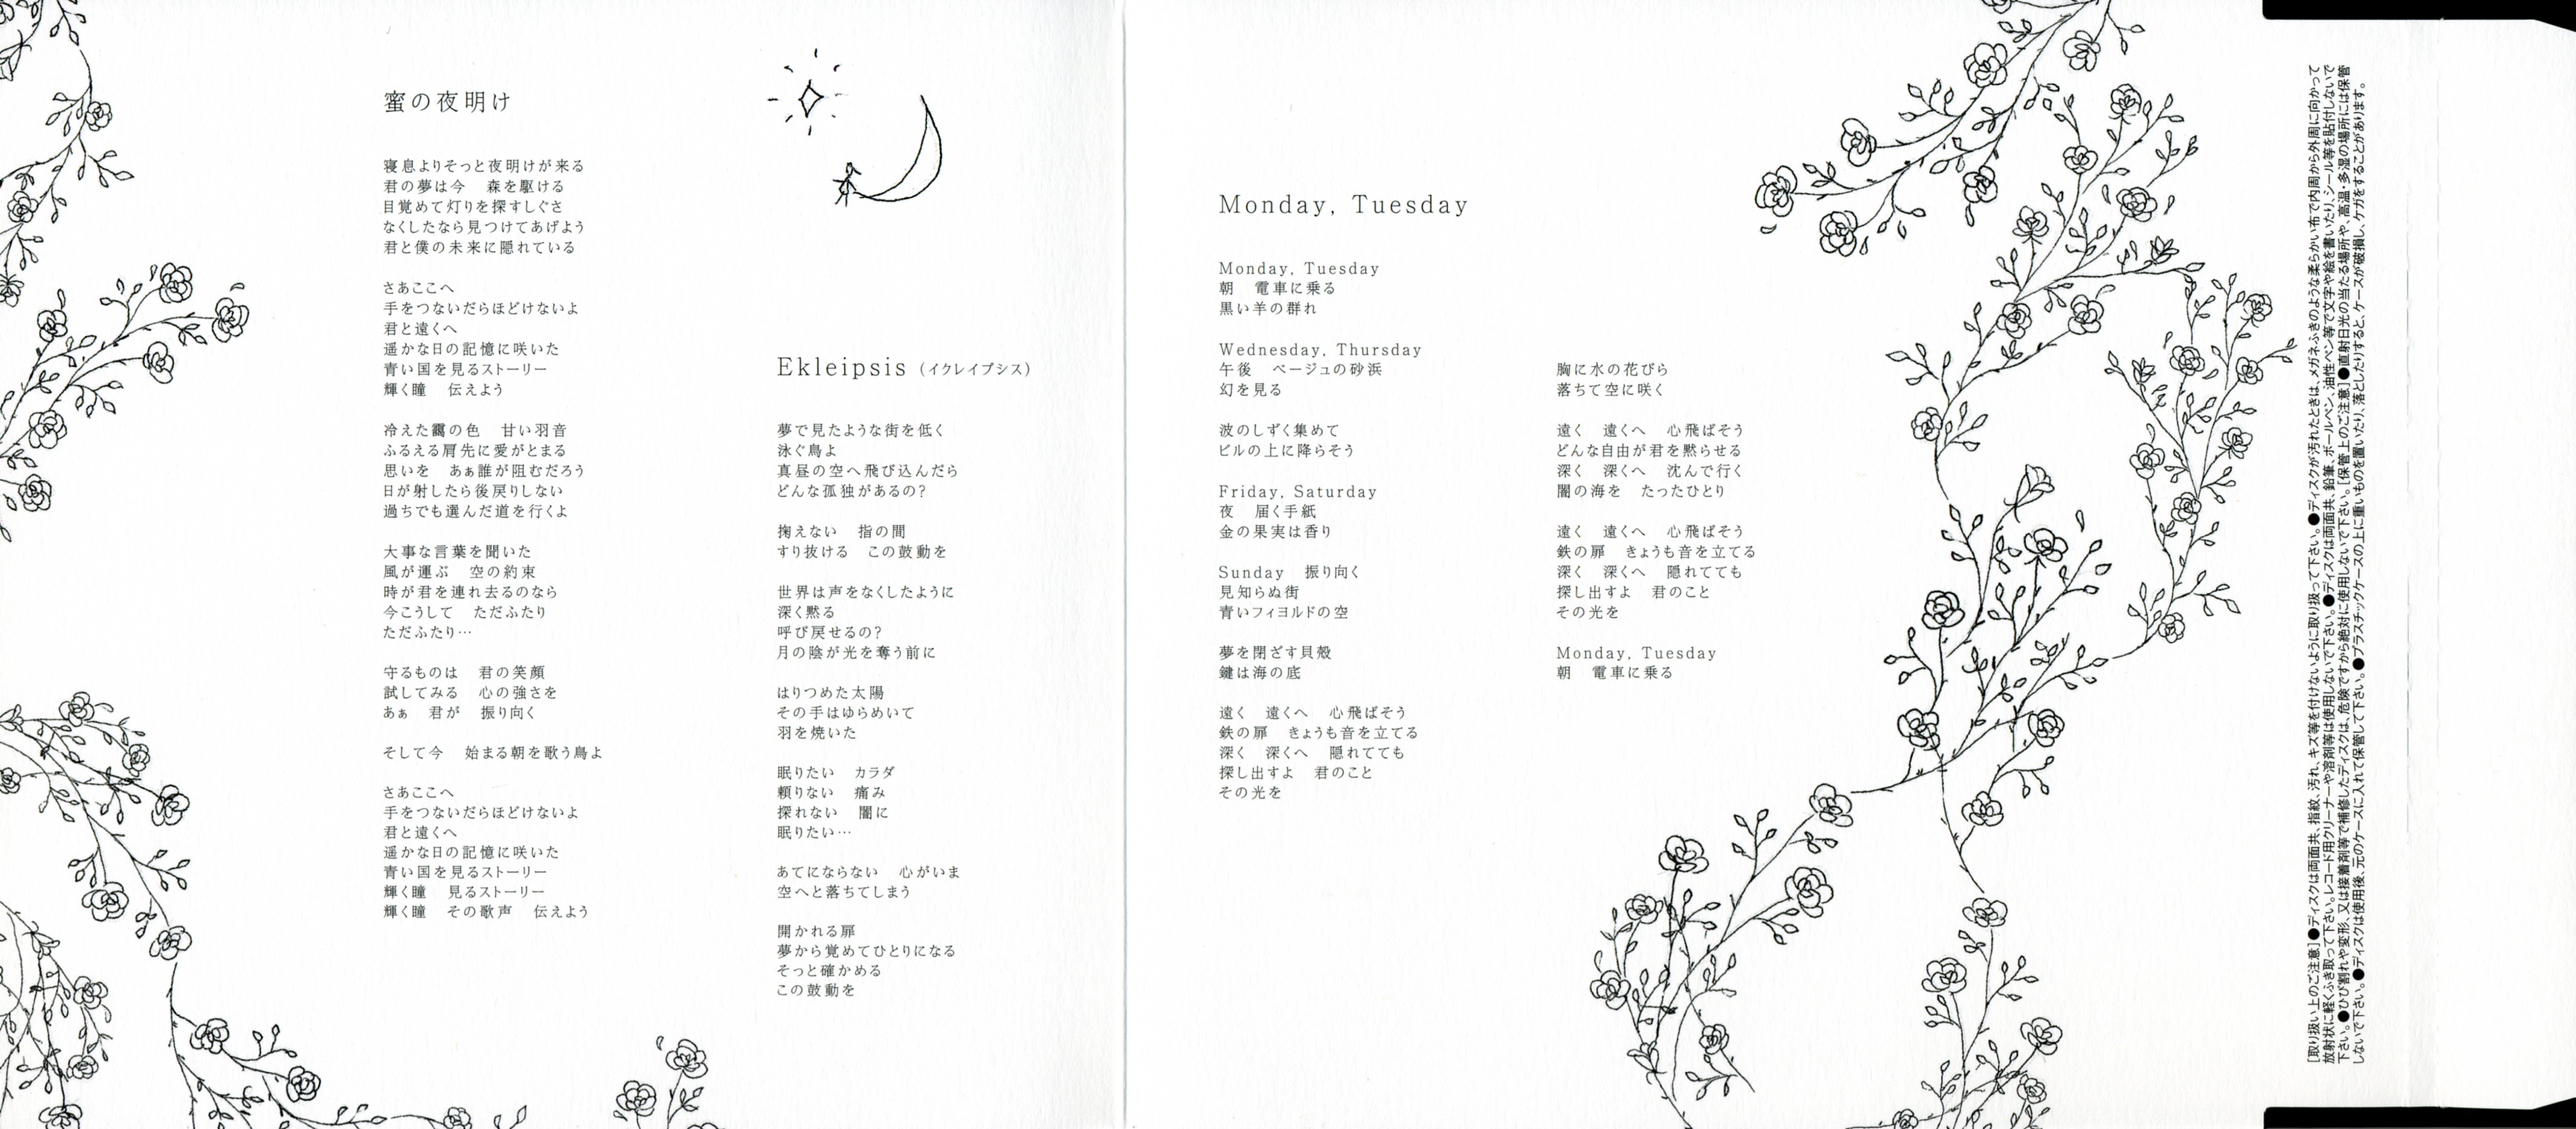 蜜の夜明け
寝息よりそっと夜明けが来る
君の夢は今　森を駆ける
目覚めて灯りを探すしぐさ
なくしたなら見つけてあげよう
君と僕の未来に隠れている
さあここへ
手をつないだらほどけないよ
君と遠くへ
遥かな日の記憶に咲いた
青い国を見るストーリー
輝く瞳　伝えよう
冷えた靄の色　甘い羽音
ふるえる肩先に愛がとまる
思いを　あぁ誰が阻むだろう
日が射したら後戻りしない
過ちでも選んだ道を行くよ
大事な言葉を聞いた
風が運ぶ　空の約束
時が君を連れ去るのなら
今こうして　ただふたり
ただふたり…
守るものは　君の笑顔
試してみる　心の強さを
あぁ　君が　振り向く
そして今　始まる朝を歌う鳥よ
さあここへ
手をつないだらほどけないよ
君と遠くへ
遥かな日の記憶に咲いた
青い国を見るストーリー
輝く瞳　見るストーリー
輝く瞳　その歌声　伝えよう
Ekleipsis（イクレイプシス）
夢で見たような街を低く
泳ぐ鳥よ
真昼の空へ飛び込んだら
どんな孤独があるの？
掬えない　指の間
すり抜ける　この鼓動を
世界は声をなくしたように
深く黙る
呼び戻せるの？
月の陰が光を奪う前に
はりつめた太陽
その手はゆらめいて
羽を焼いた
眠りたい　カラダ
頼りない　痛み
探れない　闇に
眠りたい…
あてにならない　心がいま
空へと落ちてしまう
開かれる扉
夢から覚めてひとりになる
そっと確かめる
この鼓動を
Monday, Tuesday
Monday, Tuesday
朝　電車に乗る
黒い羊の群れ
Wednesday, Thursday
午後　ベージュの砂浜
幻を見る
波のしずく集めて
ビルの上に降らそう
Friday, Saturday
夜　届く手紙
金の果実は香り
Sunday　振り向く
見知らぬ街
青いフィヨルドの空
夢を閉ざす貝殻
鍵は海の底
遠く　遠くへ　心飛ばそう
鉄の扉　きょうも音を立てる
深く　深くへ　隠れてても
探し出すよ　君のこと
その光を
胸に水の花びら
落ちて空に咲く
遠く　遠くへ　心飛ばそう
どんな自由が君を黙らせる
深く　深くへ　沈んで行く
闇の海を　たったひとり
遠く　遠くへ　心飛ばそう
鉄の扉　きょうも音を立てる
深く　深くへ　隠れてても
探し出すよ　君のこと
その光を
Monday, Tuesday
朝　電車に乗る
[取り扱い上のご注意]●ディスクは両面共、指紋、汚れ、キズ等を付けないように取り扱って下さい。●ディスクが汚れたときは、メガネふきのような柔らかい布で内周から外周に向かって
放射状に軽くふき取って下さい。レコード用クリーナーや溶剤等は使用しないで下さい。●ディスクは両面共、鉛筆、ボールペン、油性ペン等で文字や絵を書いたり、シール等を貼付しないで
下さい。●ひび割れや変形、又は接着剤等で補修したディスクは、危険ですから絶対に使用しないで下さい。[保管上のご注意]●直射日光の当たる場所や、高温・多湿の場所には保管
しないで下さい。●ディスクは使用後、元のケースに入れて保管して下さい。●プラスチックケースの上に重いものを置いたり、落としたりすると、ケースが破損し、ケガをすることがあります。